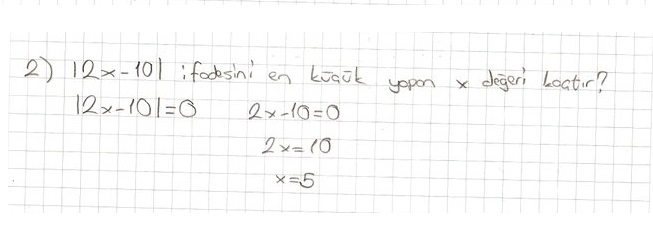 2) |2x-10| ifadesini en küçük yapan x değeri kaçtır?
|2x-10|=0 2x-10=0
2x=10
x=5